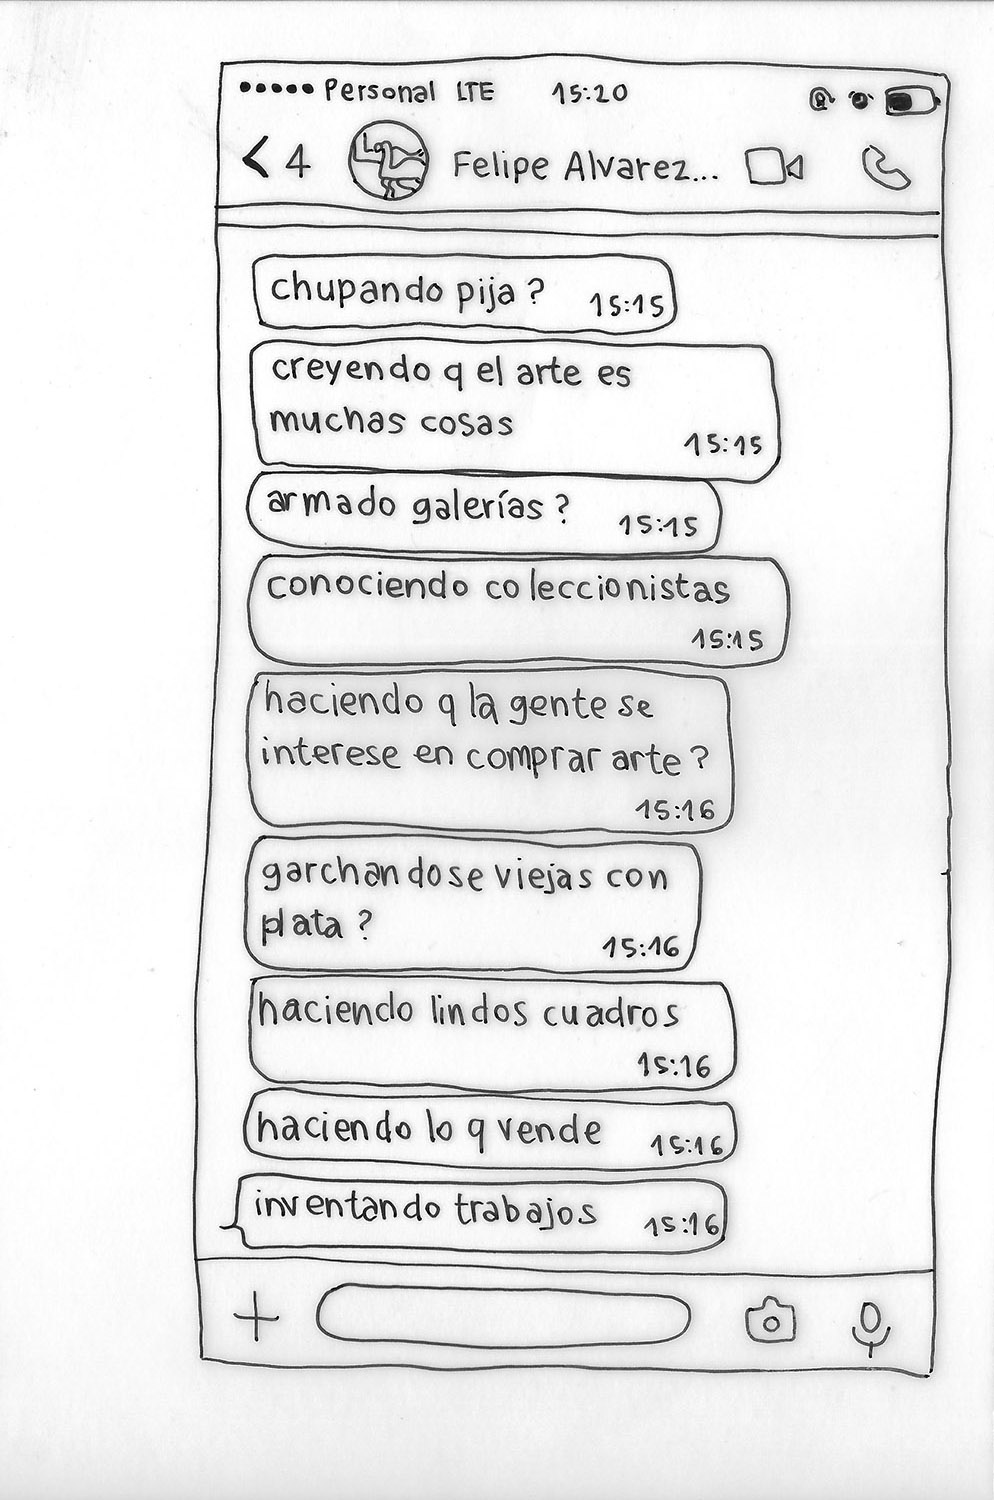 Personal LTE 15:20
< 4 Felipe Alvarez...
chupando pija ? 15:15
creyendo q el arte es
muchas cosas
15:15
armado galerías ? 15:15
conociendo coleccionistas
15:15
haciendo q la gente se
interese en comprar arte ?
15:16
garchandose viejas con
plata ?
15:16
haciendo lindos cuadros
15:16
haciendo lo q vende 15:16
inventando trabajos 15:16